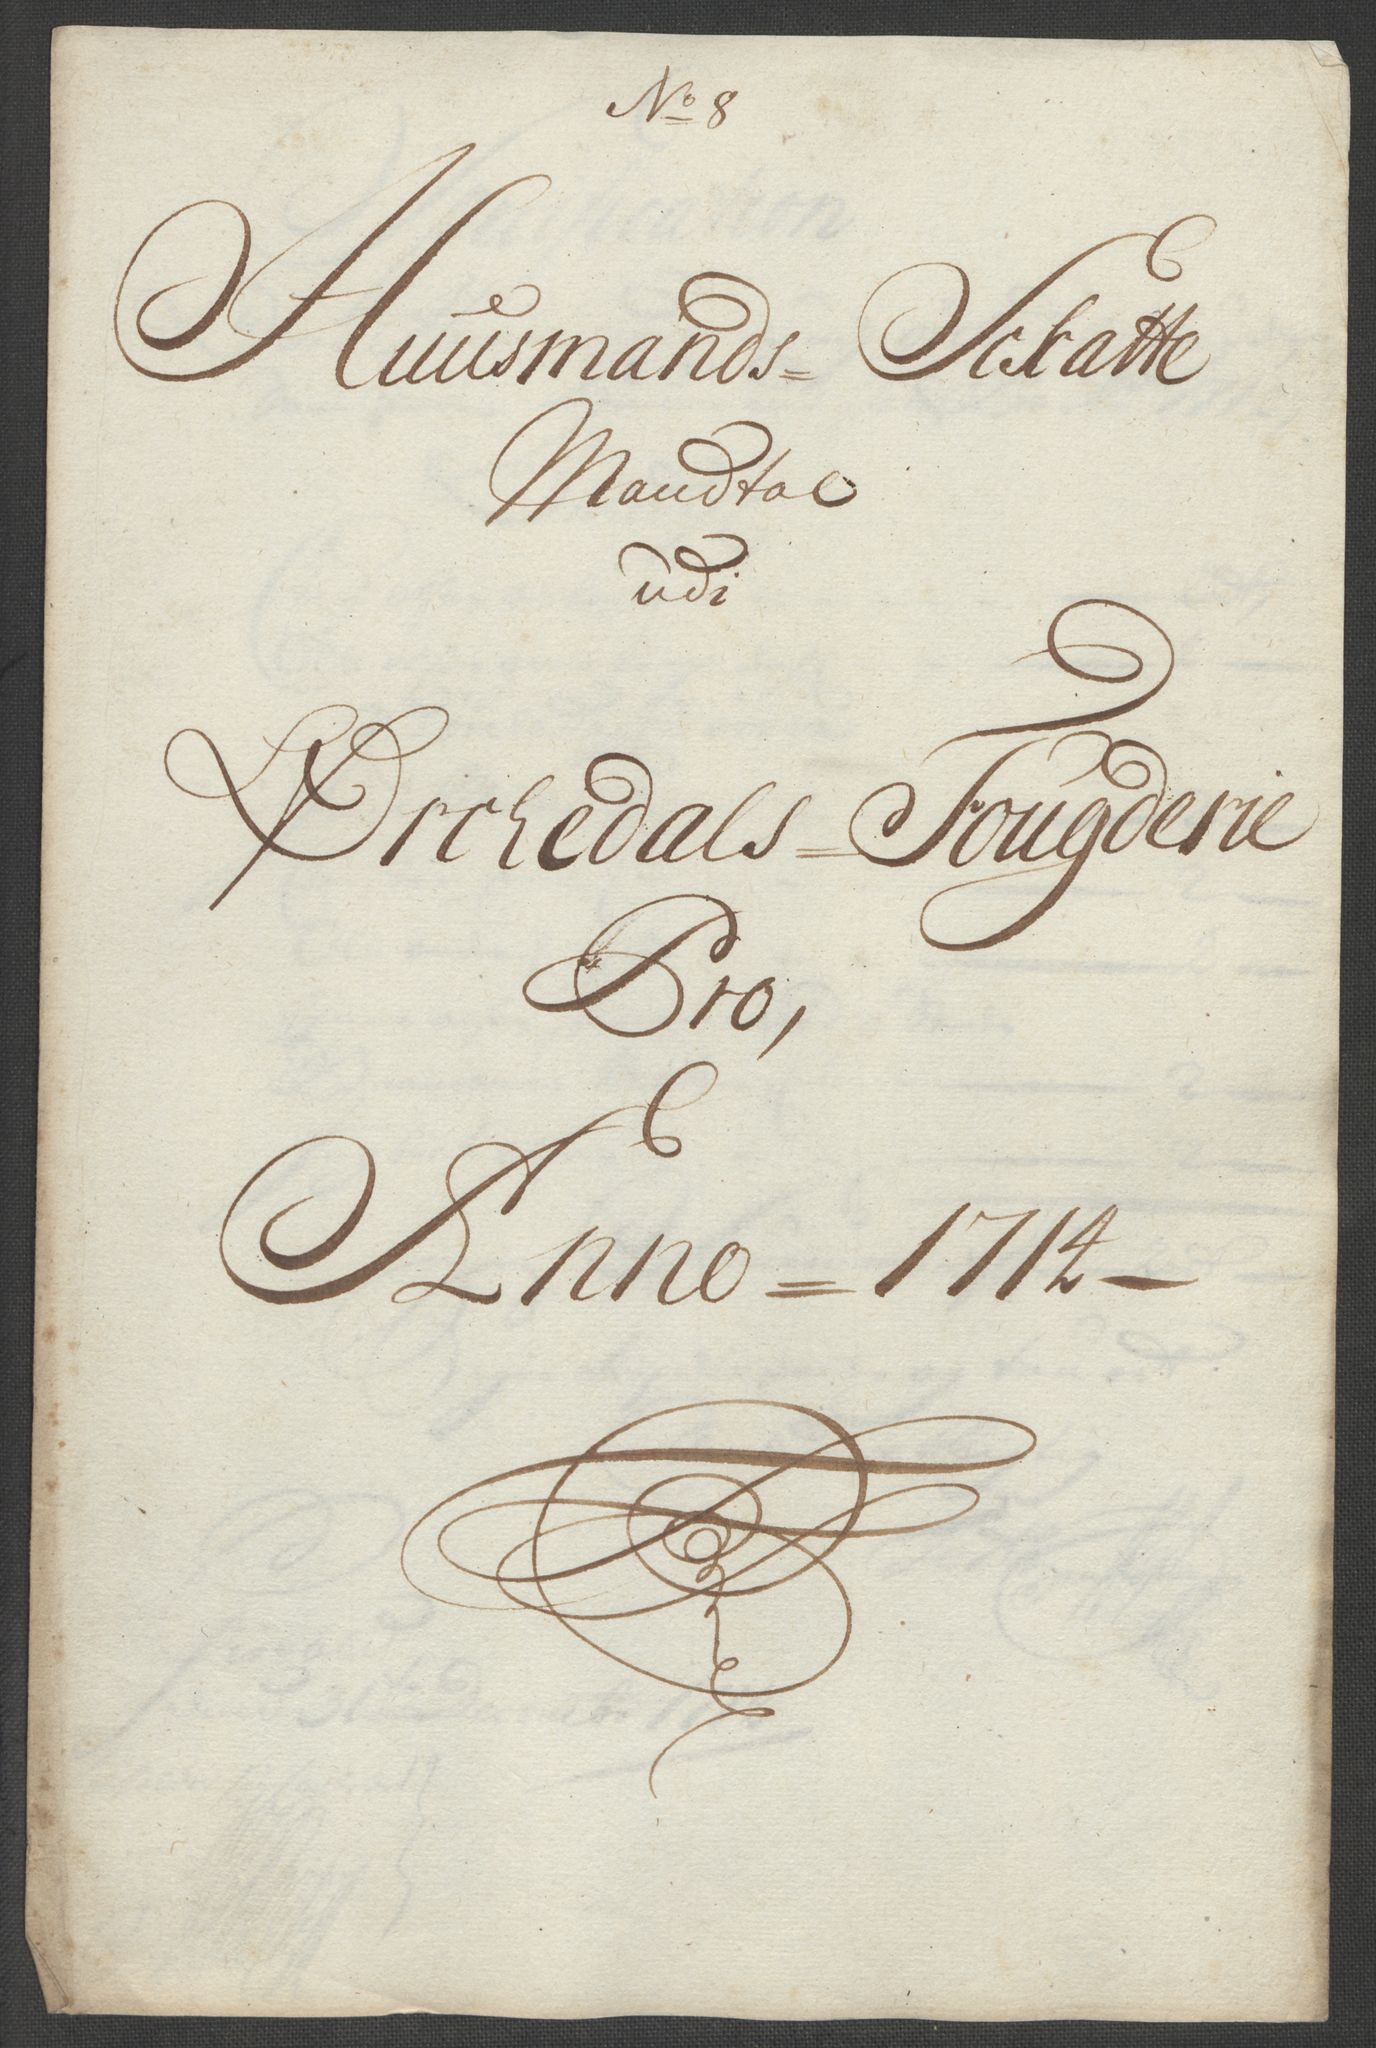 No 8
Huusmands= Schatte
Mandtal
udi
Ørchedals=Fougderie
Pro,
Anno = 1714 —